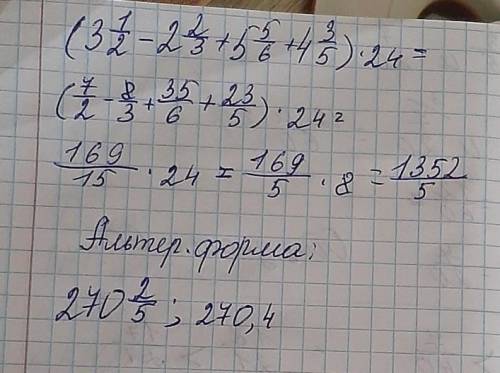 (3 1/2 - 2 2/3 + 5 5/6 + 4 3/5) · 24 =
(7/2 - 8/3 + 35/6 + 23/5) · 24 =
169/15 · 24 = 169/5 · 8 = 1352/5
Альтер. форма;
270 2/5 ; 270,4